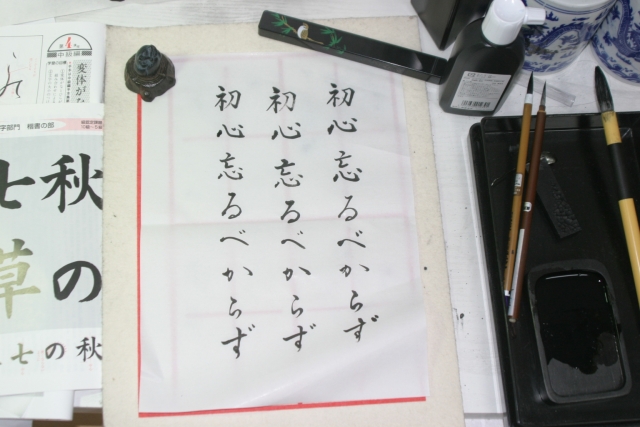 初心忘るべからず
初心忘るべからず
初心忘るべからず
中級編
変体がな
字部門 楷書の部
秋の
七草
秋の七